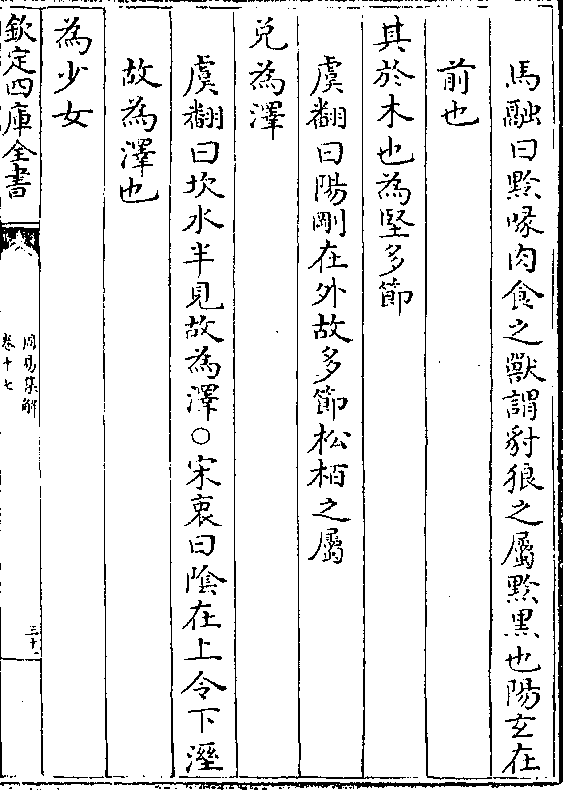 馬融曰黔喙肉食之獸謂豺狼之屬黔黑也陽玄在
前也
其於木也為堅多節
虞翻曰陽剛在外故多節松栢之屬
兌為澤
虞翻曰坎水半見故為澤○宋衷曰陰在上令下溼
故為澤也
為少女
欽定四庫全書
周易集解
卷十七
三十